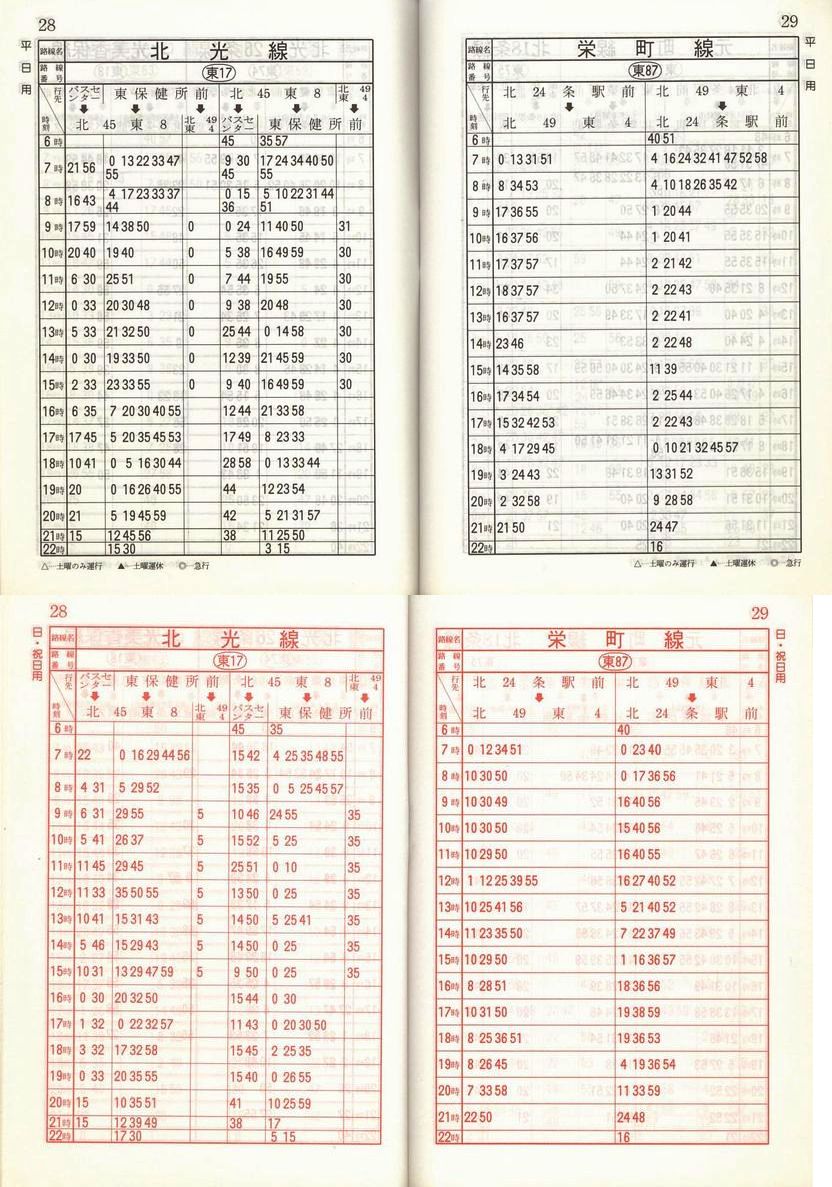 28
平日用
路線名 北光線
路線番号 東17
行先 バスセンター 東保健所前 北45東8 北49東4
時刻 北45東8 北49東4 バスセンター 東保健所前
6時 45 35 57
7時 21 56 0 13 22 33 47 55 9 30 45 17 24 34 40 50 55
8時 16 43 4 17 23 33 37 44 0 15 36 5 10 22 31 44 51
9時 17 59 14 38 50 0 0 24 11 40 50 31
10時 20 40 19 40 0 5 38 16 49 59 30
11時 6 30 25 51 0 7 44 19 55 30
12時 0 33 20 30 48 0 9 38 20 48 30
13時 5 33 21 32 50 0 25 44 0 14 58 30
14時 0 30 19 33 50 0 12 39 21 45 59 30
15時 2 33 23 33 55 0 9 40 16 49 59 30
16時 6 35 7 20 30 40 55 12 44 21 33 58
17時 17 45 5 20 35 45 53 17 49 8 23 33
18時 10 41 0 5 16 30 44 28 58 0 13 33 44
19時 20 0 16 26 40 55 44 12 23 54
20時 21 5 19 45 59 42 5 21 31 57
21時 15 12 45 56 38 11 25 50
22時 15 30 3 15
△…土曜のみ運行 ▲…土曜運休 ◎…急行
29
平日用
路線名 栄町線
路線番号 東87
行先 北24条駅前 北49東4
時刻 北49東4 北24条駅前
6時 40 51
7時 0 13 31 51 4 16 24 32 41 47 52 58
8時 8 34 53 4 10 18 26 35 42
9時 17 36 55 1 20 44
10時 16 37 56 1 20 41
11時 17 37 57 2 21 42
12時 18 37 57 2 22 43
13時 16 37 57 2 22 41
14時 23 46 2 22 48
15時 14 35 58 11 39
16時 17 34 54 2 25 44
17時 15 32 42 53 2 22 43
18時 4 17 29 45 0 10 21 32 45 57
19時 3 24 43 13 31 52
20時 2 32 58 9 28 58
21時 21 50 24 47
22時 16
△…土曜のみ運行 ▲…土曜運休 ◎…急行
28
日・祝日用
路線名 北光線
路線番号 東17
行先 バスセンター 東保健所前 北45東8 北49東4
時刻 北45東8 北49東4 バスセンター 東保健所前
6時 45 35
7時 22 0 16 29 44 56 15 42 4 25 35 48 55
8時 4 31 5 29 52 15 35 0 5 25 45 57
9時 6 31 29 55 5 10 46 24 55 35
10時 5 41 26 37 5 15 52 5 25 35
11時 11 45 29 45 5 25 51 0 10 35
12時 11 33 35 50 55 5 13 50 0 25 35
13時 10 41 15 31 43 5 14 50 5 25 41 35
14時 5 46 15 29 43 5 14 50 0 25 35
15時 10 31 13 29 47 59 5 9 50 0 25 35
16時 0 30 20 32 50 15 44 0 30
17時 1 32 0 22 32 57 11 43 0 20 30 50
18時 3 32 17 32 58 15 45 2 25 35
19時 0 33 20 35 55 15 40 0 26 55
20時 15 10 35 51 41 10 25 59
21時 15 12 39 49 38 17
22時 17 30 5 15
29
日・祝日用
路線名 栄町線
路線番号 東87
行先 北24条駅前 北49東4
時刻 北49東4 北24条駅前
6時 40
7時 0 12 34 51 0 23 40
8時 10 30 50 0 17 36 56
9時 10 30 49 16 40 56
10時 10 30 50 15 40 56
11時 10 29 50 16 40 55
12時 1 12 25 39 55 16 27 40 52
13時 10 25 41 56 5 21 40 52
14時 11 23 35 50 7 22 37 49
15時 10 29 50 1 16 36 57
16時 8 28 51 18 36 56
17時 10 31 50 19 38 59
18時 8 25 36 51 19 36 53
19時 8 26 45 4 19 36 54
20時 7 33 58 11 33 59
21時 22 50 24 48
22時 16